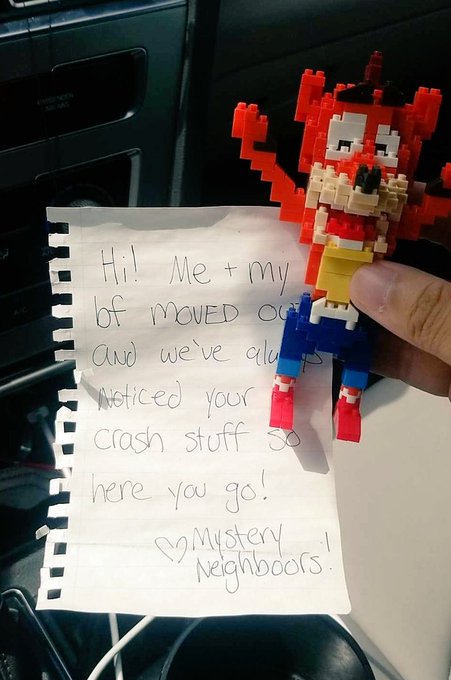 Hi! Me + my
bf MOVED
and we've
Noticed your
crash stuff so
here you go!
♡ Mystery
Neighboors!